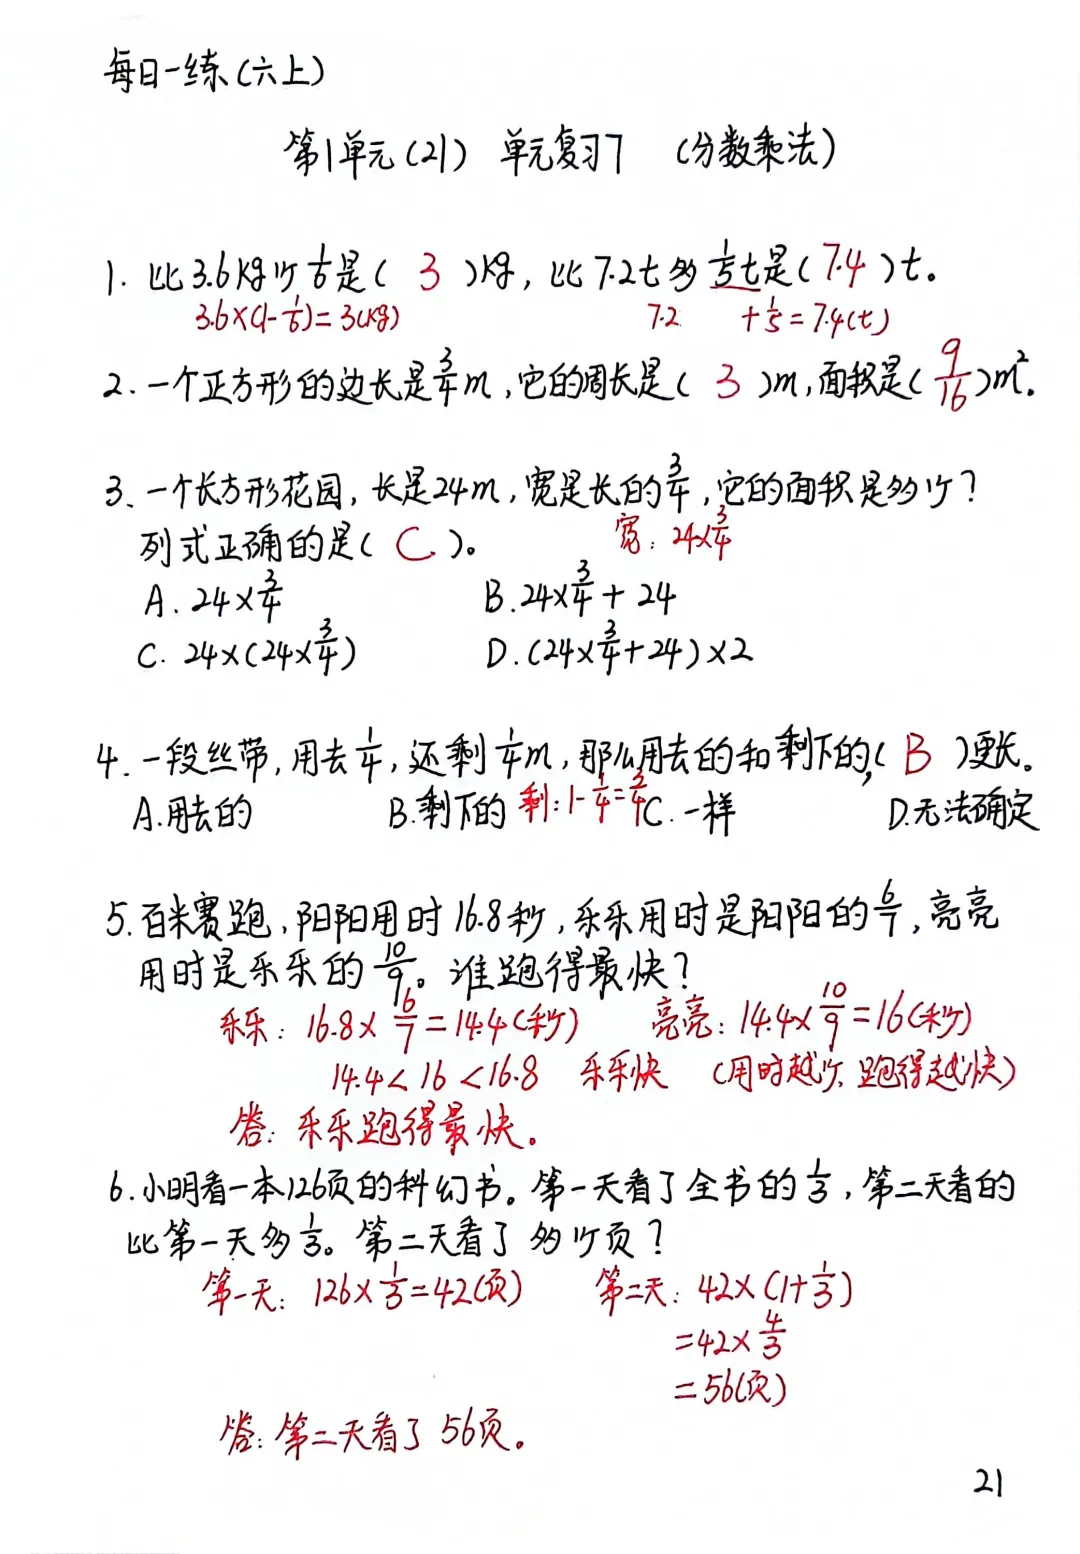 每日一练(六上)
第1单元(21) 单元复习7 (分数乘法)
1. 比3.6kg少1/6是( 3 )kg, 比7.2t多1/5t是(7.4)t。
3.6×(1-1/6)=3(kg) 7.2 +1/5=7.4(t)
2. 一个正方形的边长是3/4m,它的周长是( 3 )m,面积是(9/16)m²。
3、一个长方形花园,长是24m,宽是长的3/4,它的面积是多少?
列式正确的是( C )。 宽:24×3/4
A. 24×3/4 B.24×3/4+24
C. 24×(24×3/4) D.(24×3/4+24)×2
4. 一段丝带,用去1/4,还剩1/4m,那么用去的和剩下的,( B )更长。
A.用去的 B.剩下的 剩:1-1/4=3/4 C.一样 D.无法确定
5. 百米赛跑,阳阳用时16.8秒,乐乐用时是阳阳的6/7,亮亮
用时是乐乐的10/9。谁跑得最快?
乐乐:16.8×6/7=14.4(秒) 亮亮:14.4×10/9=16(秒)
14.4<16<16.8 乐乐快 (用时越少,跑得越快)
答:乐乐跑得最快。
6.小明看一本126页的科幻书。第一天看了全书的1/3,第二天看的
比第一天多1/3。第二天看了多少页?
第一天:126×1/3=42(页) 第二天:42×(1+1/3)
=42×4/3
=56(页)
答:第二天看了56页。
21